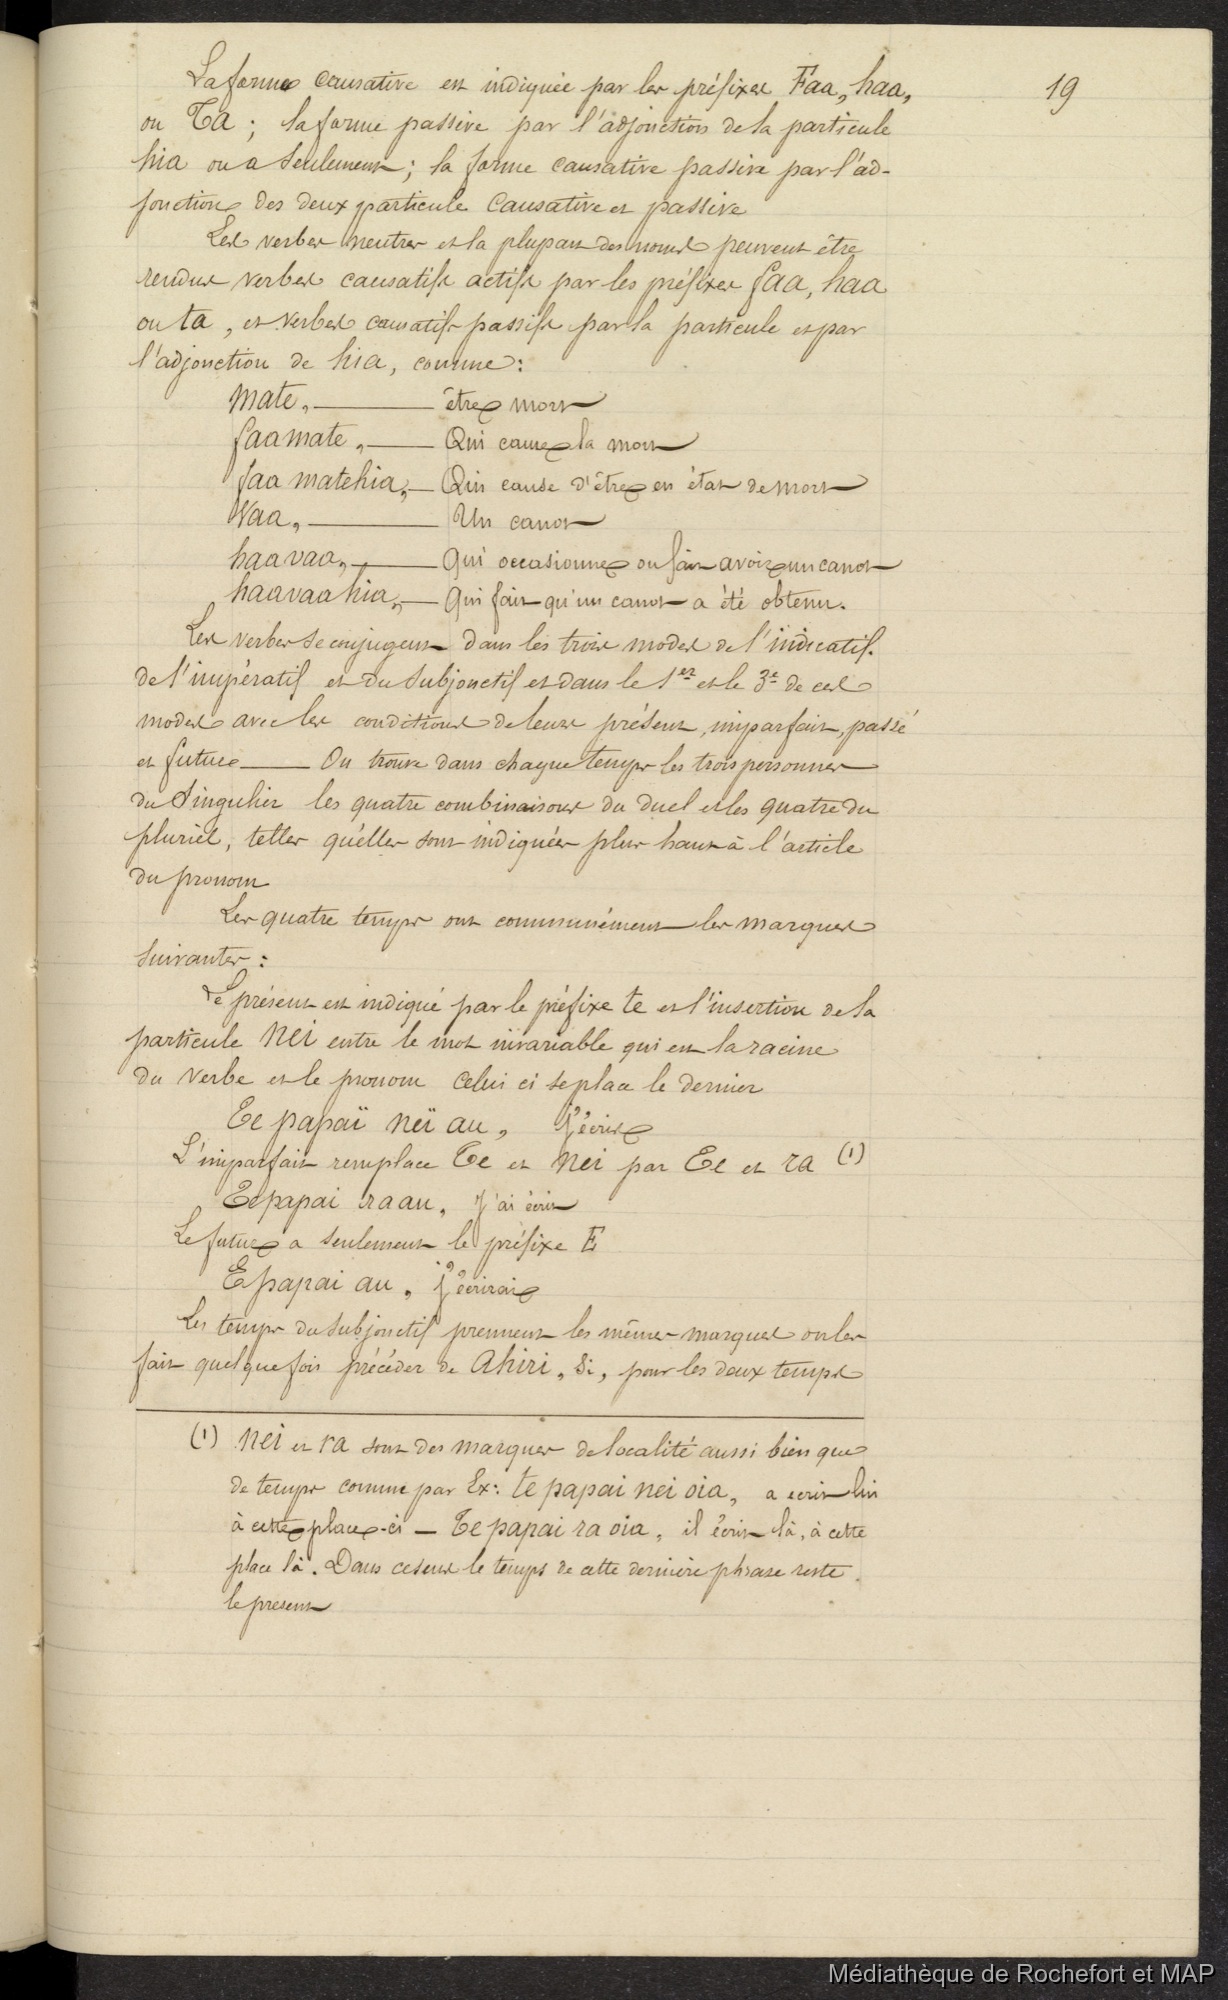 19
La forme causative est indiquée par les préfixes Faa, haa,
ou Ta ; la forme passive par l'adjonction de la particule
hia ou a seulement ; la forme causative passive par l'ad-
jonction des deux particule causative et passive
Les verbes neutres et la plupart des noms peuvent être
rendus verbes causatifs actifs par les préfixes faa, haa
ou ta, et verbes causatifs passifs par la particule et par
l'adjonction de hia, comme :
mate, — être mort
faamate, — Qui cause la mort
faa matehia, — Qui cause d'être en état de mort
Vaa, — Un canot
haavaa, — Qui occasionne ou fait avoir un canot
haavaahia, — Qui fait qu'un canot a été obtenu.
Les verbes se conjugent dans les trois modes de l'indicatif.
de l'impératif et du subjonctif et dans le 1er et le 3e de ces
modes avec les conditions de leurs présent, imparfait, passé
et future — On trouve dans chaque temps les trois personnes
du singulier les quatre combinaisons du duel et les quatre du
pluriel, telles qu'elles sont indiquées plus haut à l'article
du pronom
Les quatre temps ont communément les marques
suivantes :
Le présent est indiqué par le préfixe te et l'insertion de la
particule nei entre le mot invariable qui est la racine
du verbe et le pronom celui ci se place le dernier
Te papaï neï au, j'écris
L'imparfait remplace Te et nei par Te et ra (1)
Te papai ra au, j'ai écrit
Le future a seulement le préfixe E
E papai au, j'écrirai
Les temps du subjonctif prennent les mêmes marques on les
fait quelque fois précéder de Ahiri, si, pour les deux temps
(1) nei et ra sont des marques de localité aussi bien que
de temps comme par Ex: te papai nei oia, a ecrit lui
à cette place-ci — Te papai ra oia, il écrit là, à cette
place là. Dans ce sens le temps de cette dernière phrase reste
le present
Médiathèque de Rochefort et MAP